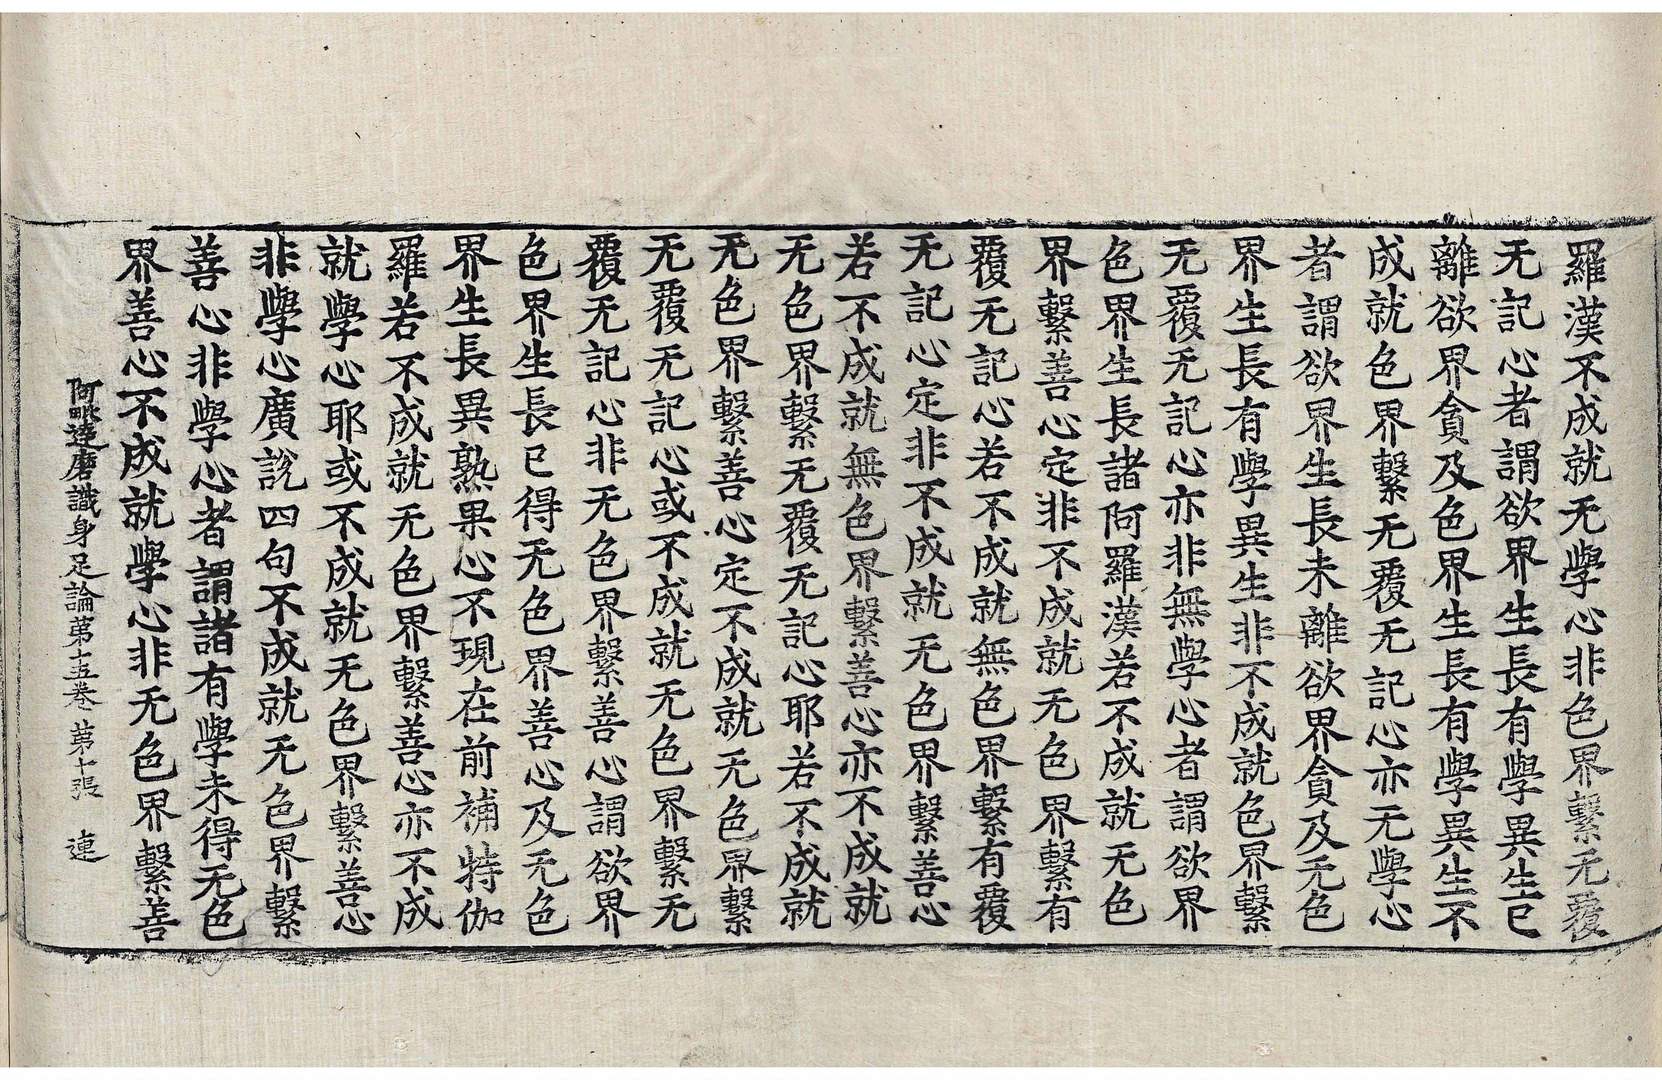 羅漢不成就无學心非色界繫无覆
无記心者謂欲界生長有學異生已
離欲界貪及色界生長有學異生不
成就色界繫无覆无記心亦无學心
者謂欲界生長未離欲界貪及无色
界生長有學異生非不成就色界繫
无覆无記心亦非無學心者謂欲界
色界生長諸阿羅漢若不成就无色
界繫善心定非不成就无色界繫有
覆无記心若不成就無色界繫有覆
无記心定非不成就无色界繫善心
若不成就無色界繫善心亦不成就
无色界繫无覆无記心耶若不成就
无色界繫善心定不成就无色界繫
无覆无記心或不成就无色界繫无
覆无記心非无色界繫善心謂欲界
色界生長已得无色界善心及无色
界生長異熟果心不現在前補特伽
羅若不成就无色界繫善心亦不成
就學心耶或不成就无色界繫善心
非學心廣說四句不成就无色界繫
善心非學心者謂諸有學未得无色
界善心不成就學心非无色界繫善
阿毗達磨識身足論苐十五卷 苐十張 連